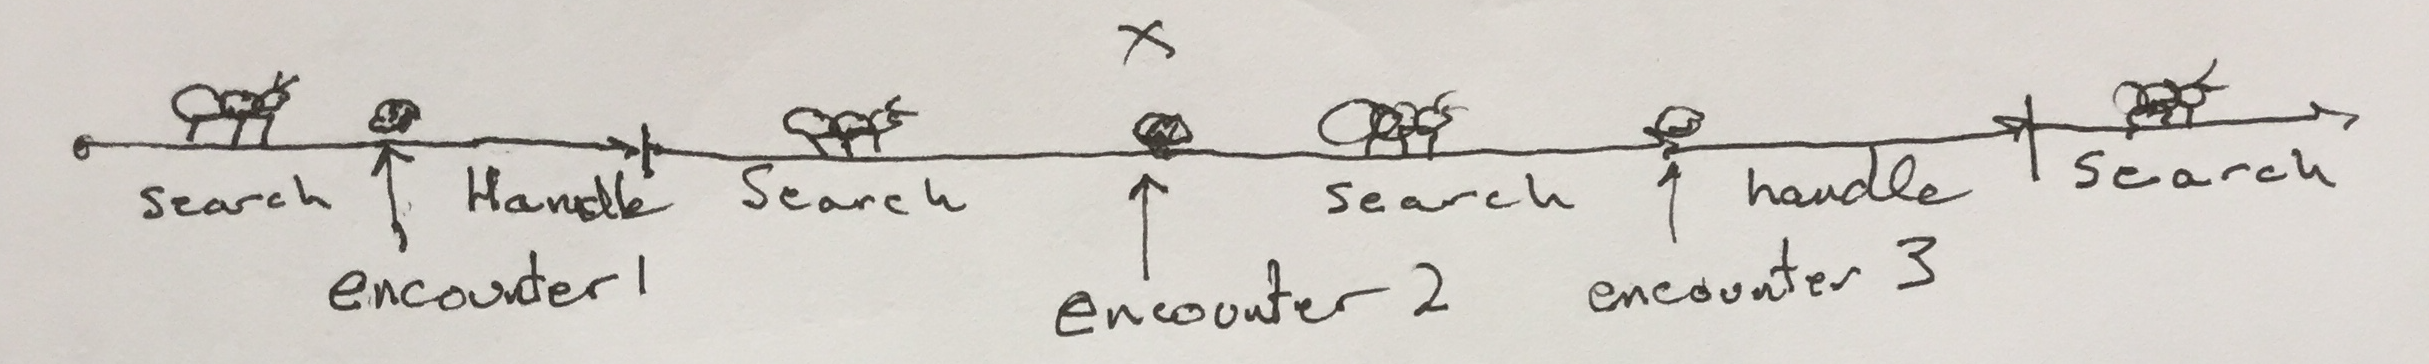 X
search Handle Search search handle Search
encounter 1 encounter 2 encounter 3